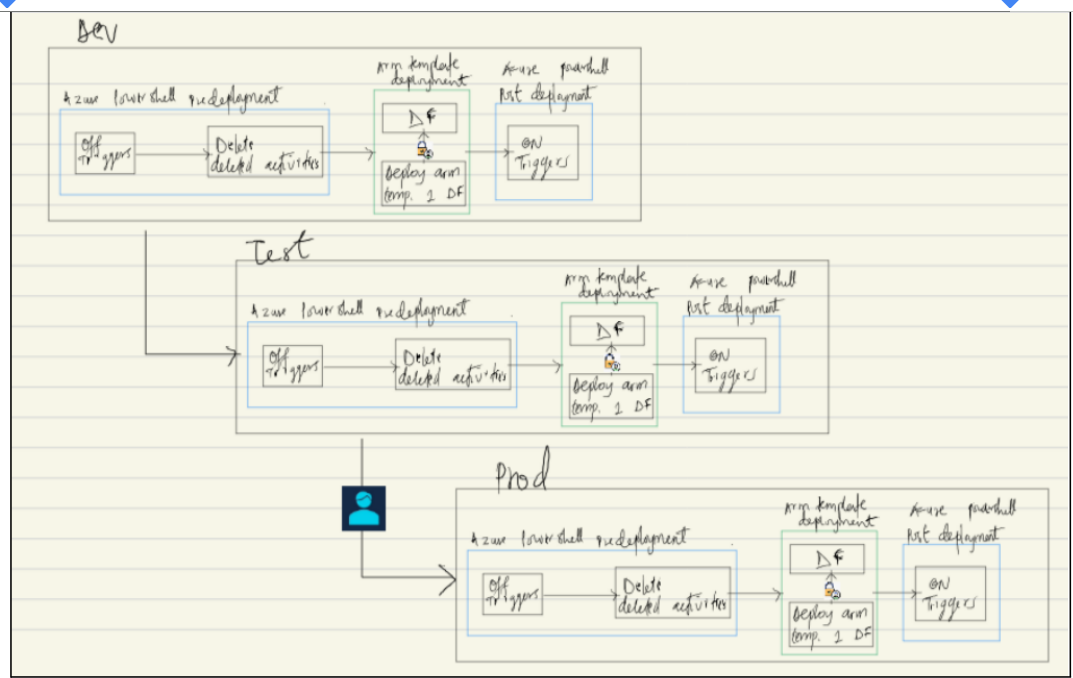 Dev
Azure powershell predeployment
Off
Triggers
Delete
deleted activities
Arm template
deployment
DF
Deploy arm
temp. 1 DF
Azure powershell
Post deployment
ON
Triggers
Test
Azure powershell predeployment
Off
Triggers
Delete
deleted activities
Arm template
deployment
DF
Deploy arm
temp. 1 DF
Azure powershell
Post deployment
ON
Triggers
Prod
Azure powershell predeployment
Off
Triggers
Delete
deleted activities
Arm template
deployment
DF
Deploy arm
temp. 1 DF
Azure powershell
Post deployment
ON
Triggers